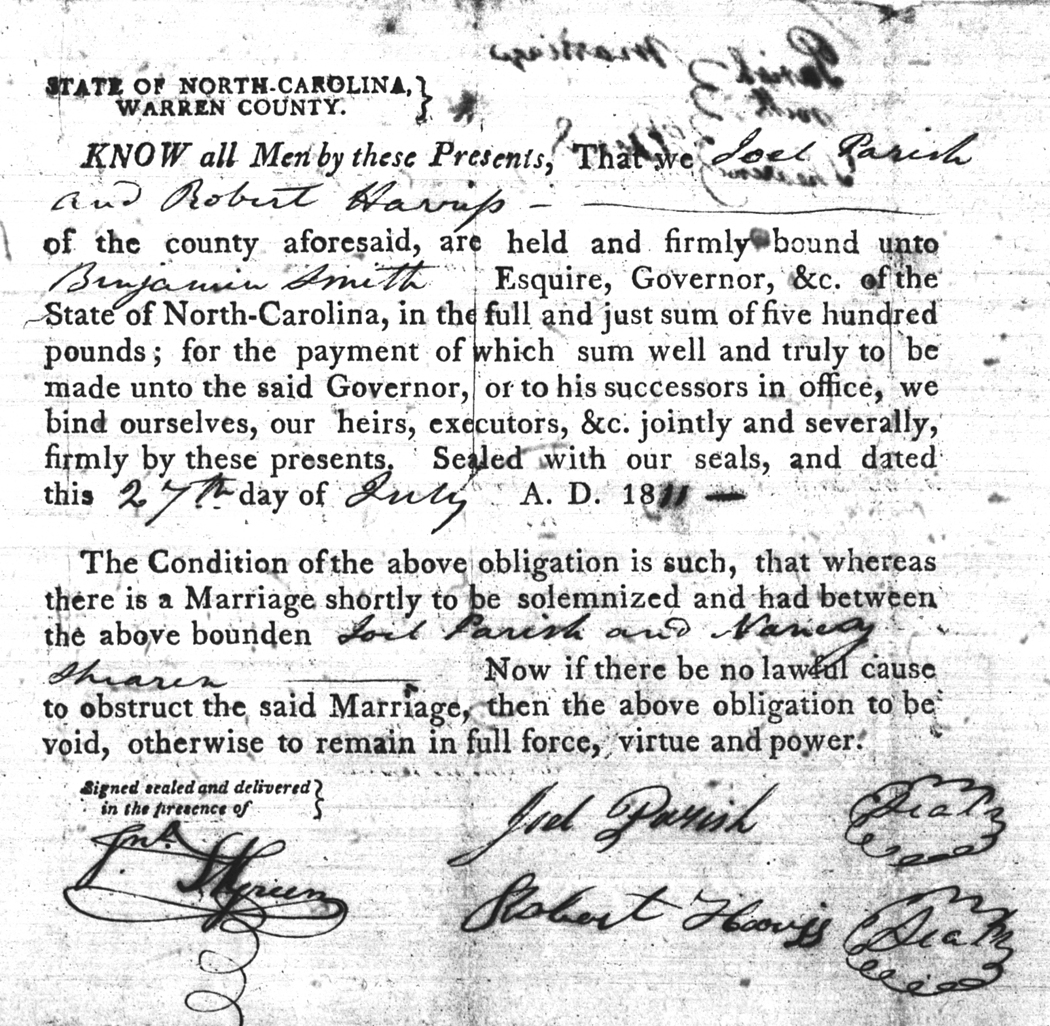 STATE OF NORTH-CAROLINA,
WARREN COUNTY.
KNOW all Men by these Presents, That we Joel Parish
and Robert Harriss
of the county aforesaid, are held and firmly bound unto
Benjamin Smith Esquire, Governor, &c. of the
State of North-Carolina, in the full and just sum of five hundred
pounds; for the payment of which sum well and truly to be
made unto the said Governor, or to his successors in office, we
bind ourselves, our heirs, executors, &c. jointly and severally,
firmly by these presents. Sealed with our seals, and dated
this 27th day of July A. D. 1811
The Condition of the above obligation is such, that whereas
there is a Marriage shortly to be solemnized and had between
the above bounden Joel Parish and Nancy
Shearen Now if there be no lawful cause
to obstruct the said Marriage, then the above obligation to be
void, otherwise to remain in full force, virtue and power.
Signed sealed and delivered
in the presence of
Joel Parish Seal
Jno.
Robert Harriss Seal